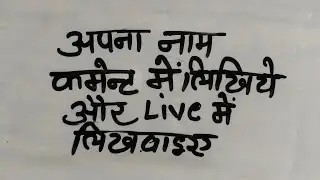 अपना नाम
कामेन्ट में लिखिये
और Live में
लिखवाइए